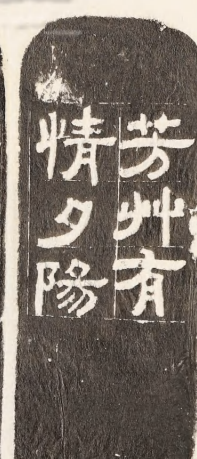 芳艸有
情夕陽